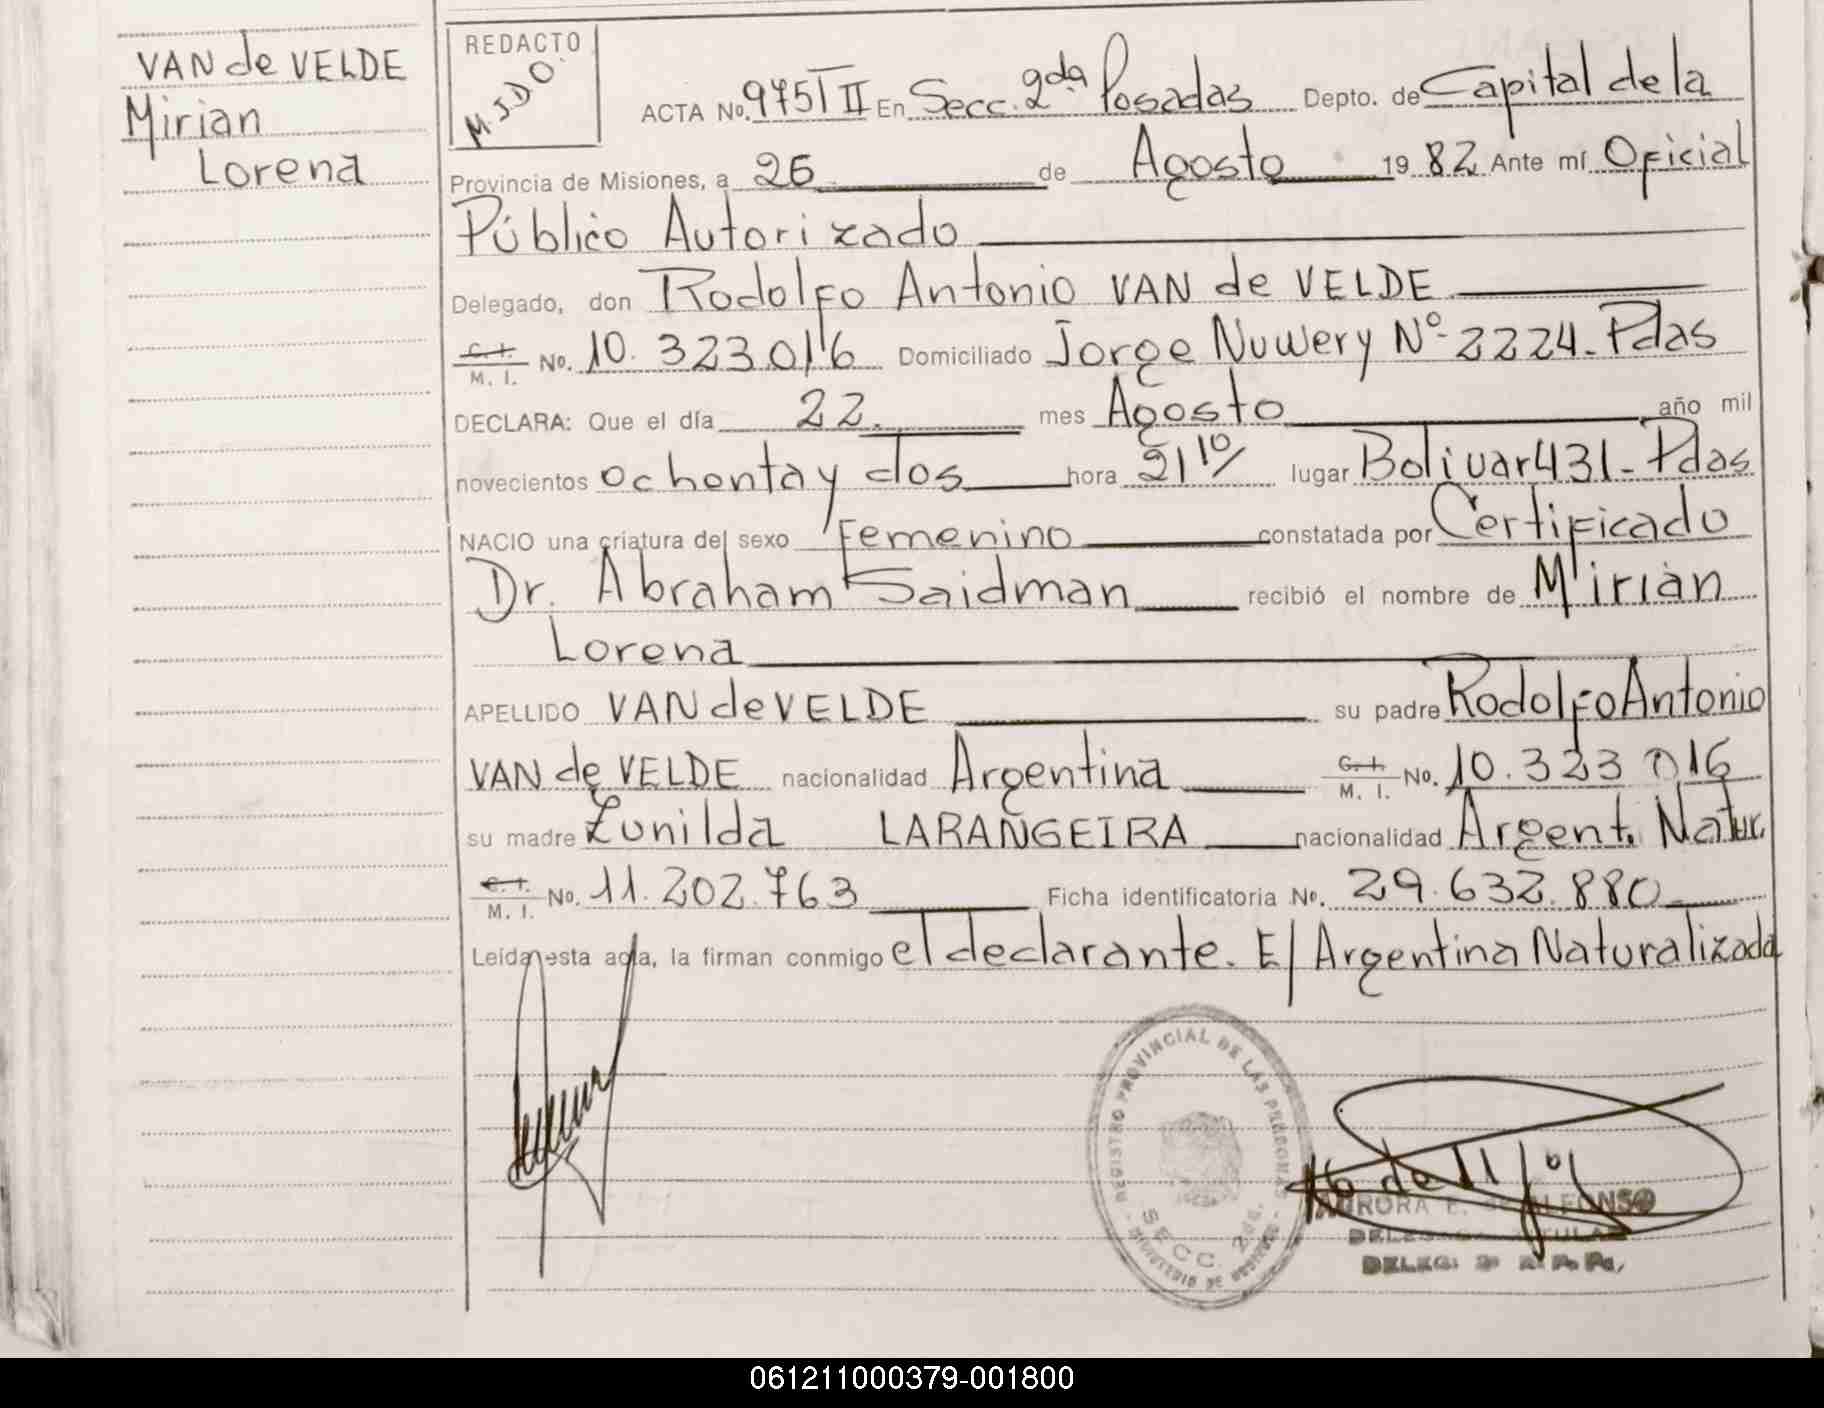 VAN de VELDE
Mirian
Lorena
REDACTO
M.J.D.O.
ACTA No. 975 T II En Secc. 2da Posadas Depto. de Capital de la
Provincia de Misiones, a 26 de Agosto 1982 Ante mí Oficial
Público Autorizado
Delegado, don Rodolfo Antonio VAN de VELDE
C. I. M. I. No. 10.323.016 Domiciliado Jorge Nuwery Nº 2224. Pdas
DECLARA: Que el día 22. mes Agosto año mil
novecientos ochenta y dos hora 21 10/ lugar Bolivar 431 - Pdas
NACIO una criatura del sexo Femenino constatada por Certificado
Dr. Abraham Saidman recibió el nombre de Mirian
Lorena
APELLIDO VAN de VELDE su padre Rodolfo Antonio
VAN de VELDE nacionalidad Argentina C. I. M. I. No. 10.323 016
su madre Zunilda LARANGEIRA nacionalidad Argent. Natur.
C. I. M. I. No. 11.202.763 Ficha identificatoria No. 29.632.880
Leída esta acta, la firman conmigo el declarante. E/ Argentina Naturalizada
REGISTRO PROVINCIAL DE LAS PERSONAS
SECC. 2da.
MINISTERIO DE GOBIERNO
AURORA E. de ALFONSO
DELEGADA TITULAR
DELEG. 2ª R. P. Ps.
061211000379-001800